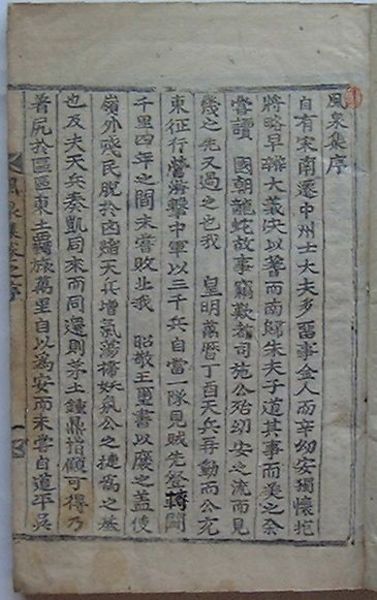 風泉集序
自有宋南遷中州士大夫多畱事金人而辛幼安獨懷抱
將略早辦大義决以而南歸朱夫子道其事而美之余
嘗讀 國朝龍蛇故事竊歎都司施公殆幼安之流而見
幾之先又過之也我 皇明萬曆丁酉天兵再動而公充
東征行營游擊中軍以三千兵自當一隊見賊先登轉鬪
千里四年之間未嘗敗北我 昭敬王璽書以褒之盖使
嶺外殘民脫於凶燄天兵增氣蕩掃妖氛公之捷爲之基
也及夫天兵奏凱同來而同還則茅土鍾鼎指顧可得乃
著尻於區區東土羇旅萬里自以爲安而未嘗自道平吳
風泉集卷之序 一